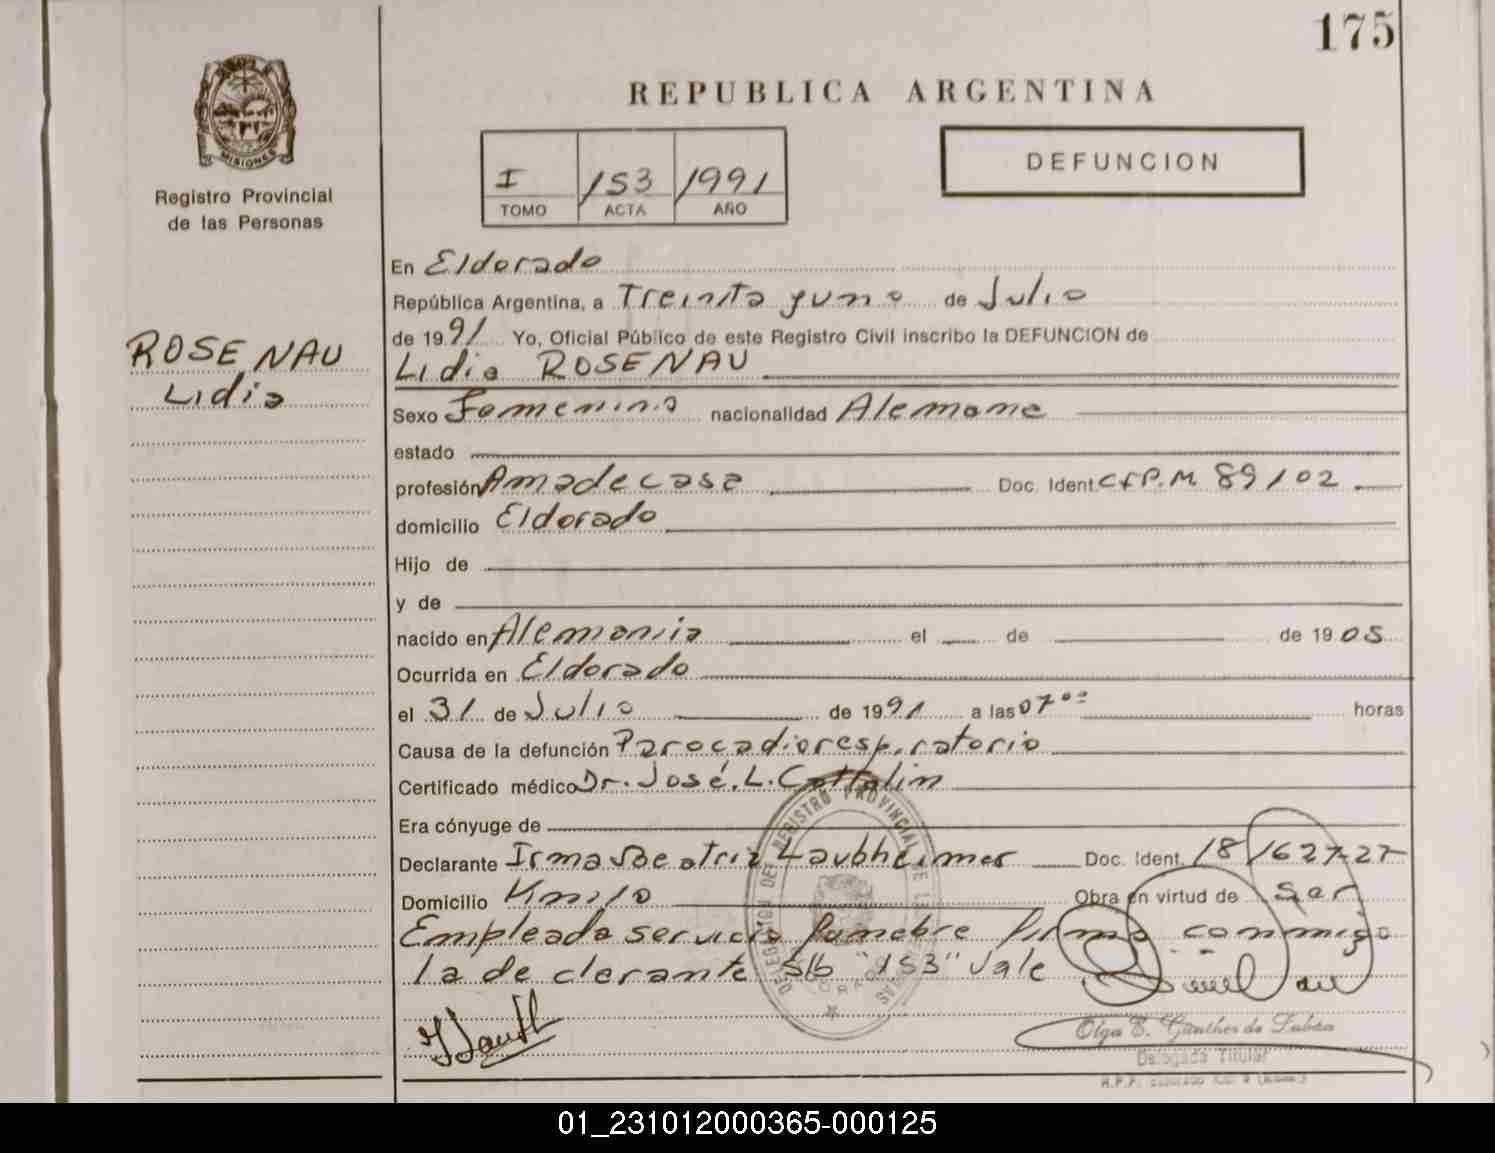 175
REPUBLICA ARGENTINA
MISIONES
Registro Provincial
de las Personas
I 153 1991
TOMO ACTA AÑO
DEFUNCION
ROSENAU
Lidia
En Eldorado
República Argentina, a Treinta y uno de Julio
de 1991 Yo, Oficial Público de este Registro Civil inscribo la DEFUNCION de
Lidia ROSENAU
Sexo Femenino nacionalidad Alemana
estado
profesión Ama de casa Doc. Ident. CfP.M 89102
domicilio Eldorado
Hijo de
y de
nacido en Alemania el de de 1905
Ocurrida en Eldorado
el 31 de Julio de 1991 a las 07 00 horas
Causa de la defunción Parocadiorespiratorio
Certificado médico Dr. José L.
Era cónyuge de
Declarante Irma Beatriz Laubheimer Doc. Ident. 18/627727
Domicilio Km 10 Obra en virtud de Ser
Empleada servicio funebre firma conmigo
la declarante S/b "153" vale
DELEGACION DEL REGISTRO PROVINCIAL DE LAS PERSONAS
Olga E. Günther de
Delegada Titular
01_231012000365-000125